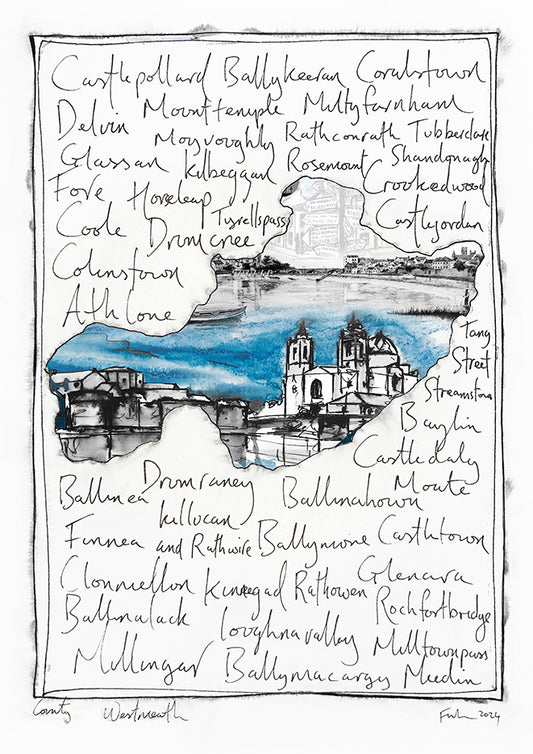 Castlepollard Ballykeeran Coralstown
Delvin Mounttemple Multyfarnham
Moyvoughly Rathconrath Tubberclare
Glassan Kilbeggan Rosemount Shandonagh
Fore Horseleap Crookedwood
Coole Drumcree Tyrrellspass Castlejordan
Colinstown
Athlone
Tang
Street
Streamstown
Baylin
Castledaly
Ballinea Drumraney Ballinahown Moate
Killucan
Finnea and Rathwire Ballymore Castletown
Clonmellon Kinnegad Rathowen Glenara
Ballinalack Loughnavalley Rochfortbridge
Milltownpass
Mullingar Ballymacargy Meedin
County Westmeath
2024